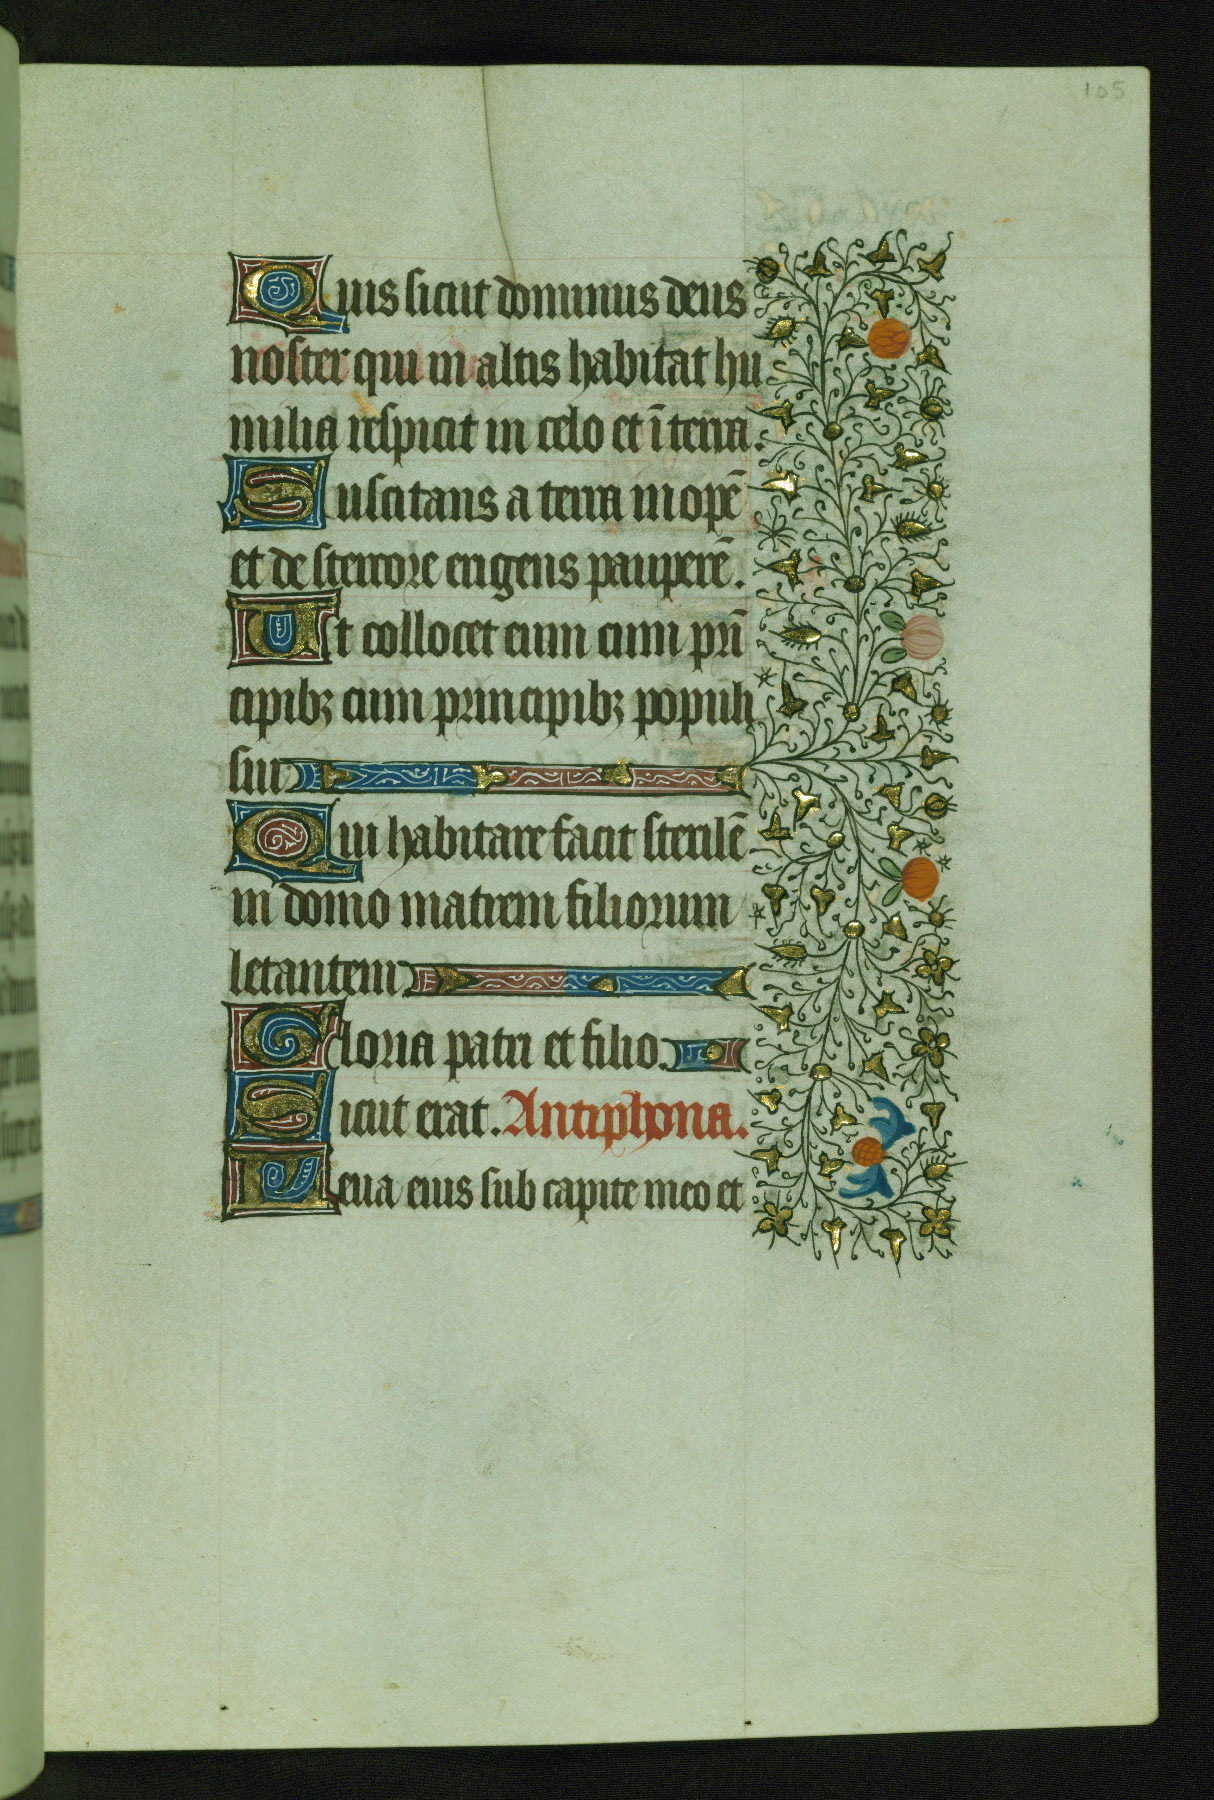 105
Quis sicut dominus deus
noster qui in altis habitat hu
milia respicit in celo et ī terra.
Suscitans a terra inopē
et de stercore erigens pauperē.
Ut collocet eum cum prī
cipibꝫ cum principibꝫ populi
sui
Qui habitare facit sterilē
in domo matrem filiorum
letantem
Gloria patri et filio.
Sicut erat. Antiphona.
Leua eius sub capite meo et